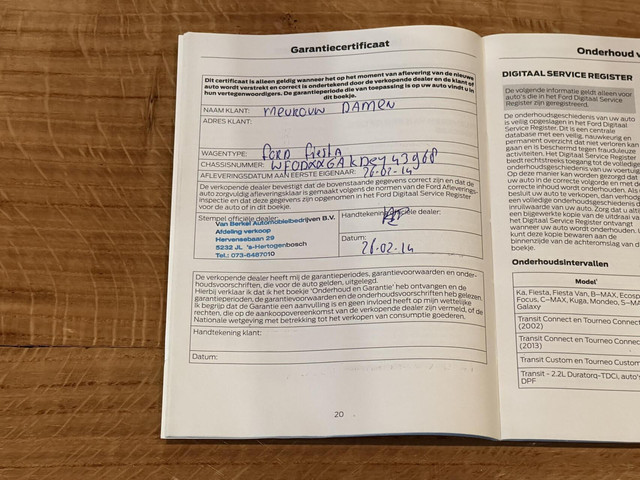 Garantiecertificaat
Dit certificaat is alleen geldig wanneer het op het moment van aflevering van de nieuwe
auto wordt verstrekt en correct is ondertekend door de verkopende dealer en de klant of
hun vertegenwoordigers. De garantieperiode die van toepassing is op uw auto vindt u in
dit boekje.
NAAM KLANT: MEVROUW DAMEN
ADRES KLANT:
WAGENTYPE: FORD Fiesta
CHASSISNUMMER:
AFLEVERINGSDATUM AAN EERSTE EIGENAAR: 26-02-14
De verkopende dealer bevestigt dat de bovenstaande gegevens correct zijn en dat de
auto zorgvuldig afleveringsklaar is gemaakt volgens de normen van de Ford Aflevering
inspectie en dat deze gegevens zijn opgenomen in het Ford Digitaal Service Register
voor de auto of in dit boekje.
Stempel officiële dealer:
Van Berkel Automobielbedrijven B.V.
Afdeling verkoop
Hervensebaan 29
5232 JL 's-Hertogenbosch
Tel.: 073-6487010
Handtekening officiële dealer:
Datum:
26-02-14
De verkopende dealer heeft mij de garantieperiodes, garantievoorwaarden en onder-
houdsvoorschriften, die voor de auto gelden, uitgelegd.
Hierbij verklaar ik dat ik het boekje 'Onderhoud en Garantie' heb ontvangen en de
garantieperiodes, de garantievoorwaarden en de onderhoudsvoorschriften heb gelezen.
Ik begrijp dat de Garantie een aanvulling is en geen invloed heeft op mijn wettelijke
rechten, die op de aankoopovereenkomst van de verkopende dealer zijn vermeld, of de
Nationale wetgeving met betrekking tot het verkopen van consumptie goederen.
Handtekening klant:
Datum:
20
Onderhoud
DIGITAAL SERVICE REGISTER
De volgende informatie geldt alleen voor
auto's die in het Ford Digitaal Service
Register zijn geregistreerd.
De onderhoudsgeschiedenis van uw auto
is veilig opgeslagen in het Ford Digitaal
Service Register. Dit is een centrale
database met een veilig, nauwkeurig en
permanent overzicht dat niet verloren kan
gaan en is beschermd tegen frauduleuze
activiteiten. Het Digitaal Service Register
biedt rechtstreeks toegang tot de volledige
onderhoudsgeschiedenis van uw voertuig.
Op deze manier kan worden gezorgd dat
uw auto in de correcte volgorde en met de
correcte inhoud wordt onderhouden. Als u
besluit uw auto te verkopen, dan verhoogt
een volledige onderhoudsgeschiedenis de
inruilwaarde van uw auto. Zorg dat u altijd
een bijgewerkte kopie van de uitdraai van
het Digitaal Service Register ontvangt
wanneer uw auto wordt onderhouden. U
kunt deze kopie bewaren aan de
binnenzijde van de achteromslag van dit
boekje.
Onderhoudsintervallen
Model
Ka, Fiesta, Fiesta Van, B-MAX, Ecosport
Focus, C-MAX, Kuga, Mondeo, S-MAX
Galaxy
Transit Connect en Tourneo Connect
(2002)
Transit Connect en Tourneo Connect
(2013)
Transit Custom en Tourneo Custom
Transit - 2.2L Duratorq-TDCi, auto's
DPF